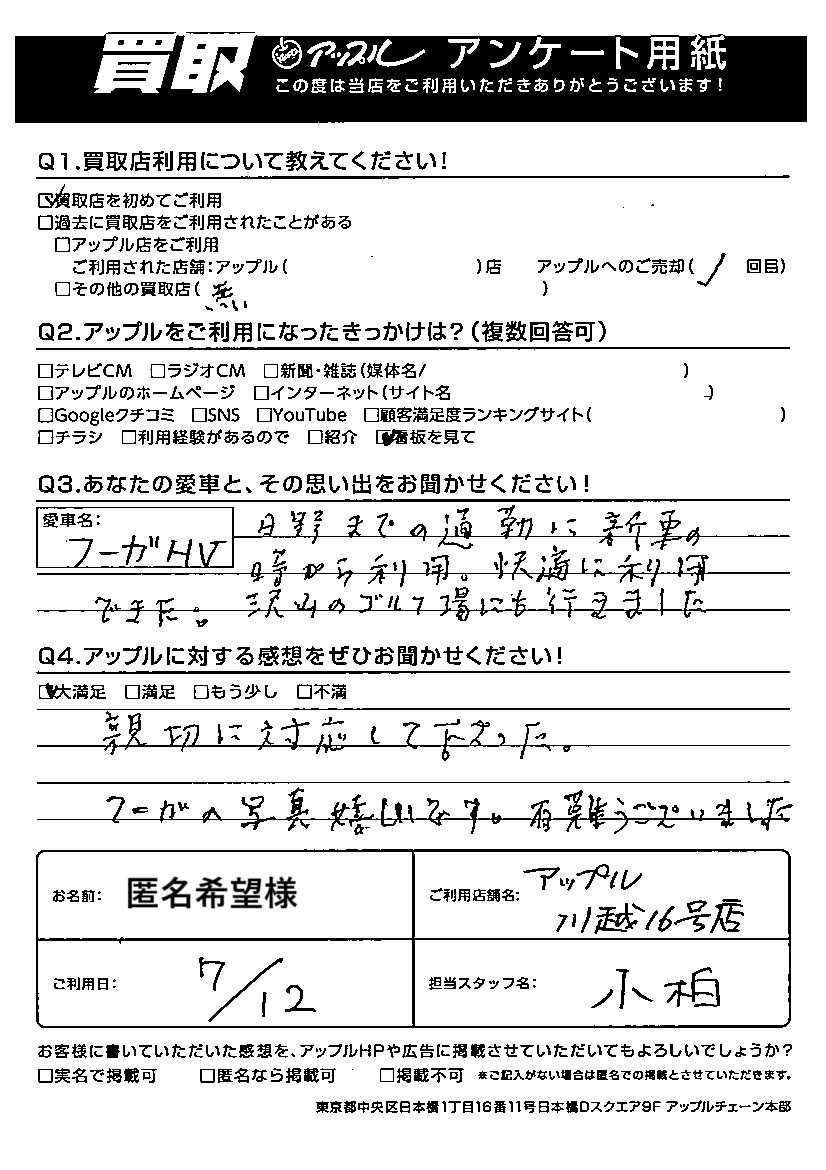 買取 アップル アンケート用紙
この度は当店をご利用いただきありがとうございます!
Q1.買取店利用について教えてください!
☑買取店を初めてご利用
□過去に買取店をご利用されたことがある
□アップル店をご利用
ご利用された店舗:アップル( )店 アップルへのご売却( 回目)
□その他の買取店( 無い )
Q2.アップルをご利用になったきっかけは?(複数回答可)
□テレビCM □ラジオCM □新聞・雑誌(媒体名/ )
□アップルのホームページ □インターネット(サイト名 )
□Googleクチコミ □SNS □YouTube □顧客満足度ランキングサイト( )
□チラシ □利用経験があるので □紹介 ☑看板を見て
Q3.あなたの愛車と、その思い出をお聞かせください!
愛車名:
フーガHV
日野までの通勤に新車の
時から利用。快適に利用
できた。沢山のゴルフ場にも行きました
Q4.アップルに対する感想をぜひお聞かせください!
☑大満足 □満足 □もう少し □不満
親切に対応して下さった。
フーガの写真嬉しいです。有難うございました
お名前: 匿名希望様
ご利用店舗名: アップル
川越16号店
ご利用日: 7/12
担当スタッフ名: 小柏
お客様に書いていただいた感想を、アップルHPや広告に掲載させていただいてもよろしいでしょうか?
□実名で掲載可 □匿名なら掲載可 □掲載不可 ※ご記入がない場合は匿名での掲載とさせていただきます。
東京都中央区日本橋1丁目16番11号日本橋Dスクエア9F アップルチェーン本部